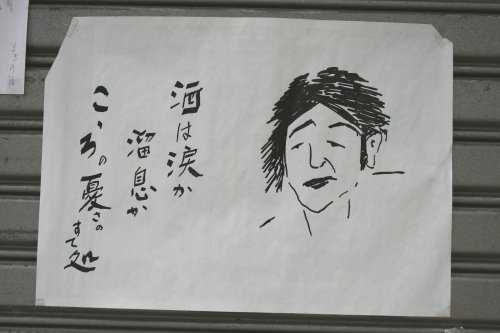 酒は涙か
溜息か
こゝろの憂さの
すて処